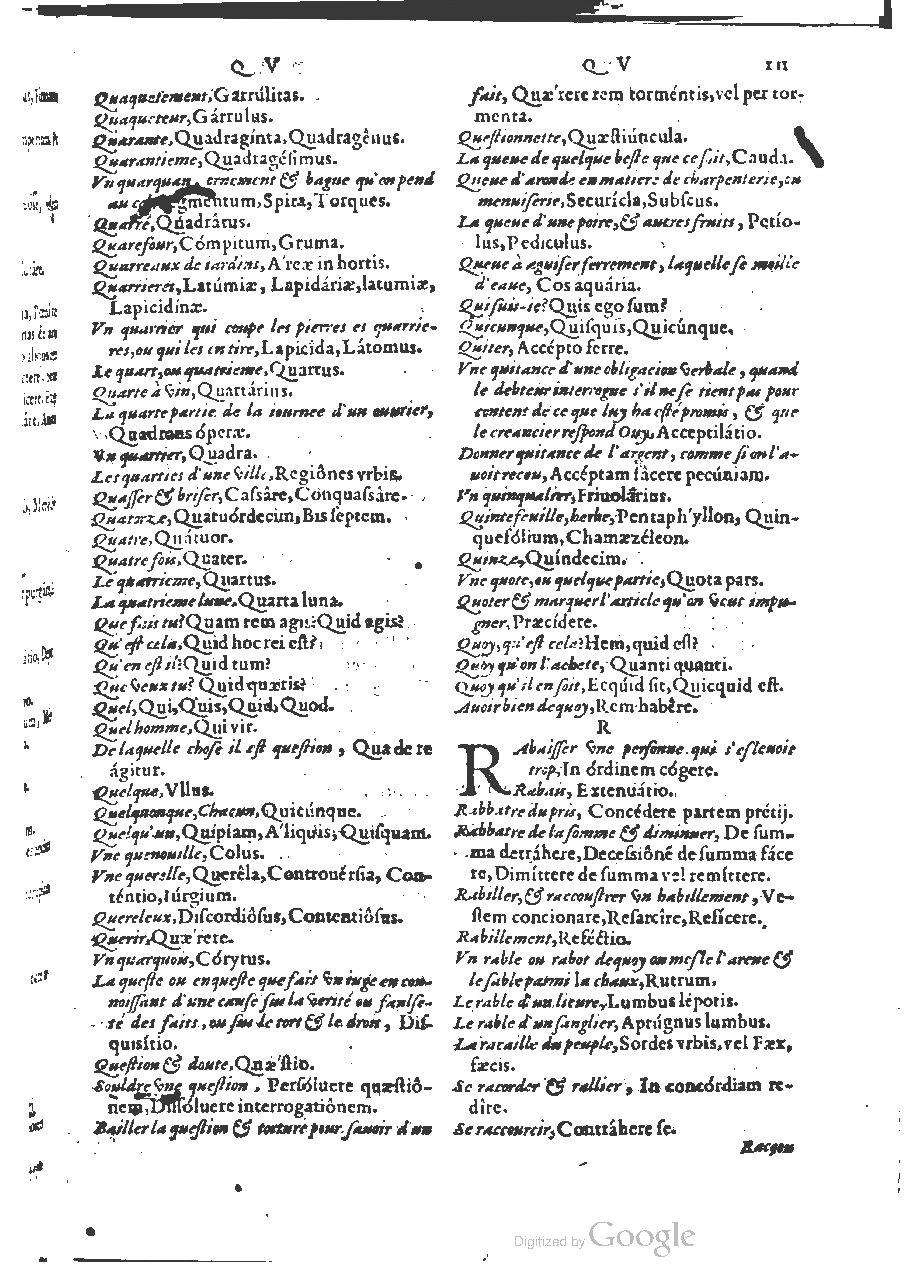 Q V
Quaquetement, Garrúlitas.
Quaqueteur, Gárrulus.
Quarante, Quadragínta, Quadragênus.
Quarantieme, Quadragésimus.
Vn quarquan, ornement & bague qu'on pend
au Spira, Torques.
Quarré, Quadrâtus.
Quarefour, Cómpitum, Gruma.
Quarreaux de iardins, A'reæ in hortis.
Quarrieres, Latúmiæ, Lapidáriæ, latumiæ,
Lapicidinæ.
Vn quarrier qui coupe les pierres es quarrie-
res, ou qui les en tire, Lapicida, Látomus.
Le quart, ou quatrieme, Quartus.
Quarte à vin, Quartárius.
La quarte partie de la iournee d'un ouurier,
Quadrans óperæ.
Vn quartier, Quadra.
Les quartiers d'une ville, Regiônes vrbis.
Quaſſer & briſer, Caſsâre, Conquaſsâre.
Quatorze, Quatuórdecim, Bis ſeptem.
Quatre, Quátuor.
Quatre fois, Quater.
Le quatrieme, Quartus.
La quatrieme lune, Quarta luna.
Que fais tu? Quam rem agis? Quid agis?
Qu'eſt cela, Quid hoc rei eſt?
Qu'en eſt il? Quid tum?
Que veux tu? Quid quæris?
Quel, Qui, Quis, Quid, Quod.
Quel homme, Qui vir.
De laquelle choſe il eſt queſtion, Qua de re
ágitur.
Quelque, Vllus.
Quelquonque, Chacun, Quicúnque.
Quelqu'un, Quípiam, A'liquis, Quiſquam.
Vne quenouille, Colus.
Vne querelle, Querêla, Controuérſia, Con-
téntio, Iúrgium.
Quereleux, Diſcordióſus, Contentiôſus.
Querir, Quæ'rere.
Vn quarquois, Córytus.
La queſte ou enqueſte que fait vn iuge en con-
noiſſant d'une cauſe ſur la verité ou fauſſe-
té des faits, ou ſur le tort & le droit, Diſ-
quisítio.
Queſtion & doute, Quæ'ſtio.
Souldre vne queſtion, Perſóluere quæſtiô-
nem, Diſſóluere interrogatiônem.
Bailler la queſtion & torture pour ſauoir d'un
Q V
fait, Quæ'rere rem torméntis, vel per tor-
menta.
Queſtionnette, Quæſtiúncula.
La queue de quelque beſte que ce ſoit, Cauda.
Queue d'aronde en matiere de charpenterie, ou
menuiſerie, Securicla, Subſcus.
La queue d'une poire, & autres fruits, Petio-
lus, Pediculus.
Queue à aguiſer ferrement, laquelle ſe moille
d'eaue, Cos aquária.
Qui ſuis-ie? Quis ego ſum?
Quicunque, Quiſquis, Quicúnque.
Quiter, Accépto ferre.
Vne quitance d'une obligacion verbale, quand
le debteur interrogue s'il ne ſe tient pas pour
content de ce que luy ha eſté promis, & que
le creancier reſpond Ouy, Acceptilátio.
Donner quitance de l'argent, comme ſi on l'a-
uoit receu, Accéptam fácere pecúniam.
Vn quinqualier, Friuolârius.
Quintefeuille, herbe, Pentaph'yllon, Quin-
quefólium, Chamæzéleon.
Quinze, Quíndecim.
Vne quote, ou quelque partie, Quota pars.
Quoter & marquer l'article qu'on veut impu-
gner, Præcídere.
Quoy, qu'eſt cela? Hem, quid eſt?
Quoy qu'on l'achete, Quanti quanti.
Quoy qu'il en ſoit, Ecquíd ſit, Quicquid eſt.
Auoir bien de quoy, Rem habêre.
R
RAbaiſſer vne perſonne qui s'eſleuoit
trop, In órdinem cógere.
Rabais, Extenuátio.
Rabbatre du pris, Concédere partem prétij.
Rabbatre de la ſomme & diminuer, De ſum-
ma detráhere, Deceſsiônē de ſumma fáce
re, Dimíttere de ſumma vel remíttere.
Rabiller, & raccouſtrer vn habillement, Ve-
ſtem concionare, Reſarcîre, Refícere.
Rabillement, Reféctio.
Vn rable ou rabot de quoy on meſle l'arene &
le ſable parmi la chaux, Rutrum.
Le rable d'un lieure, Lumbus léporis.
Le rable d'un ſanglier, Aprúgnus lumbus.
La racaille du peuple, Sordes vrbis, vel Fæx,
fæcis.
Se racorder & rallier, In concórdiam re-
dîre.
Se raccourcir, Contráhere ſe.
Digitized by Google